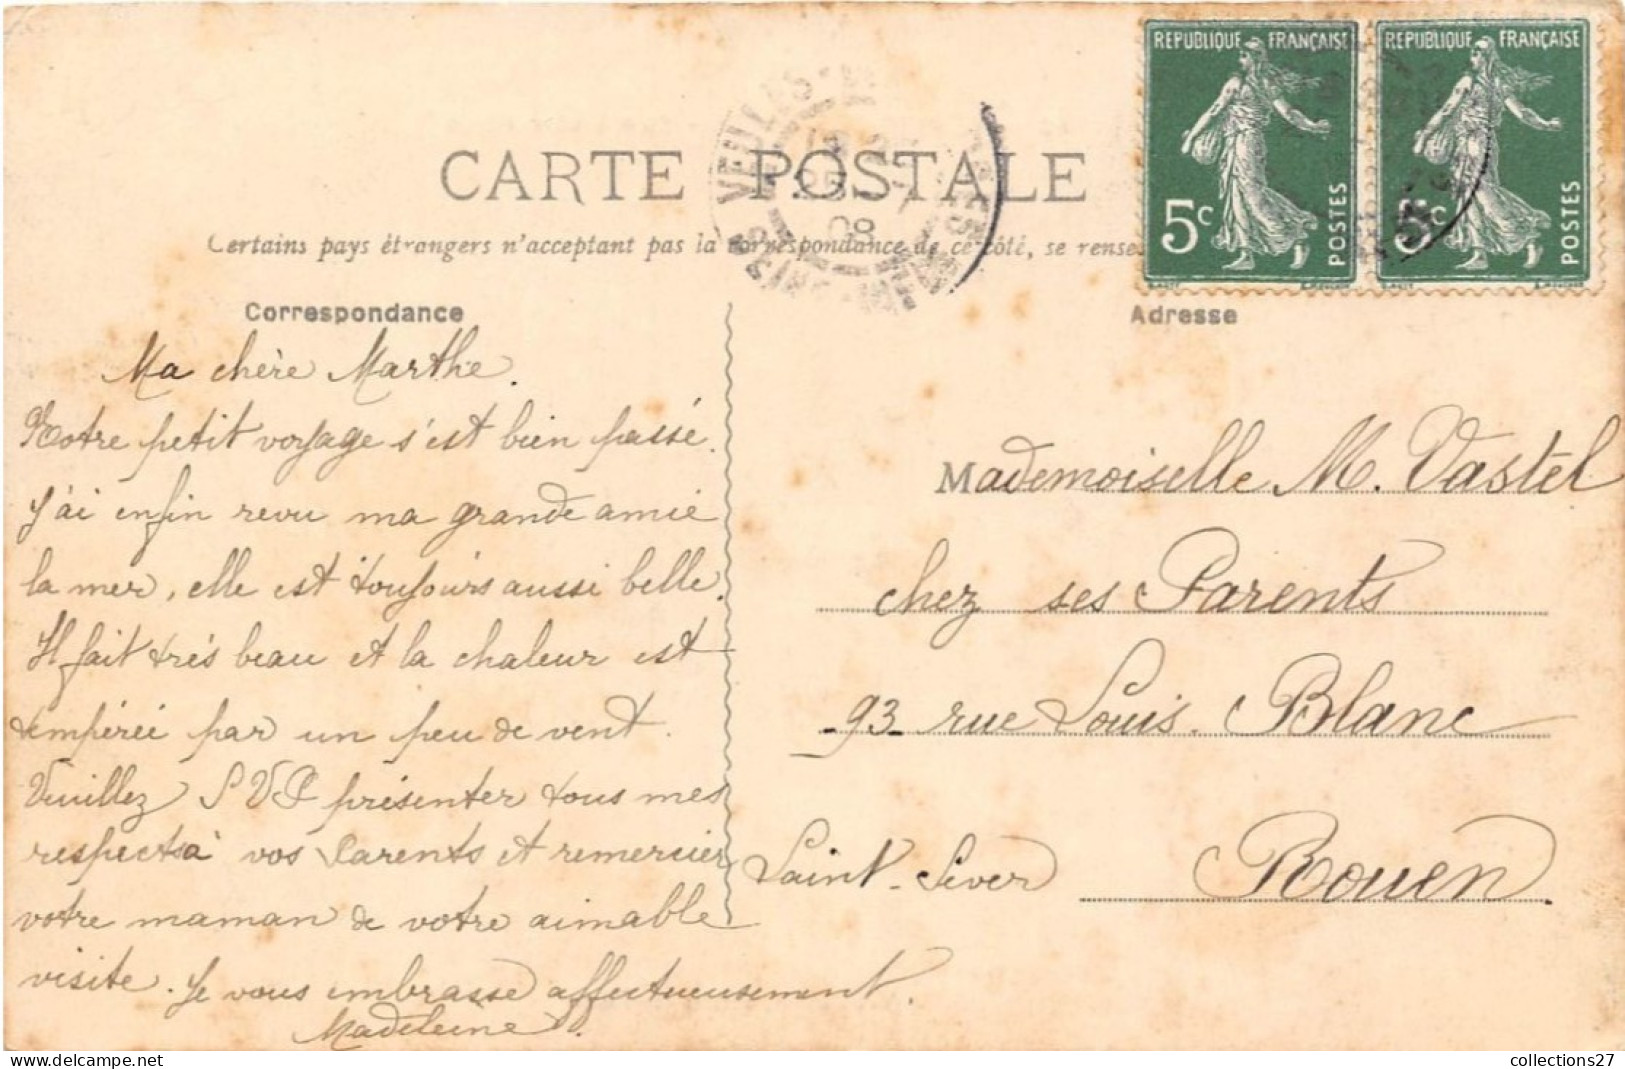 REPUBLIQUE FRANÇAISE
5c
POSTES
REPUBLIQUE FRANÇAISE
5c
POSTES
CARTE POSTALE
VEULES
25
08
Certains pays étrangers n'acceptant pas la correspondance de ce côté, se rense
Correspondance
Ma chère Marthe.
Notre petit voyage s'est bien passé.
J'ai enfin revu ma grande amie
la mer, elle est toujours aussi belle.
Il fait très beau et la chaleur est
tempérée par un peu de vent.
Veuillez SVP présenter tous mes
respects à vos Parents et remercier
votre maman de votre aimable
visite. Je vous embrasse affectueusement.
Madeleine.
Adresse
Mademoiselle M. Vastel
chez ses Parents
93 rue Louis. Blanc
Saint-Sever Rouen.
collections27